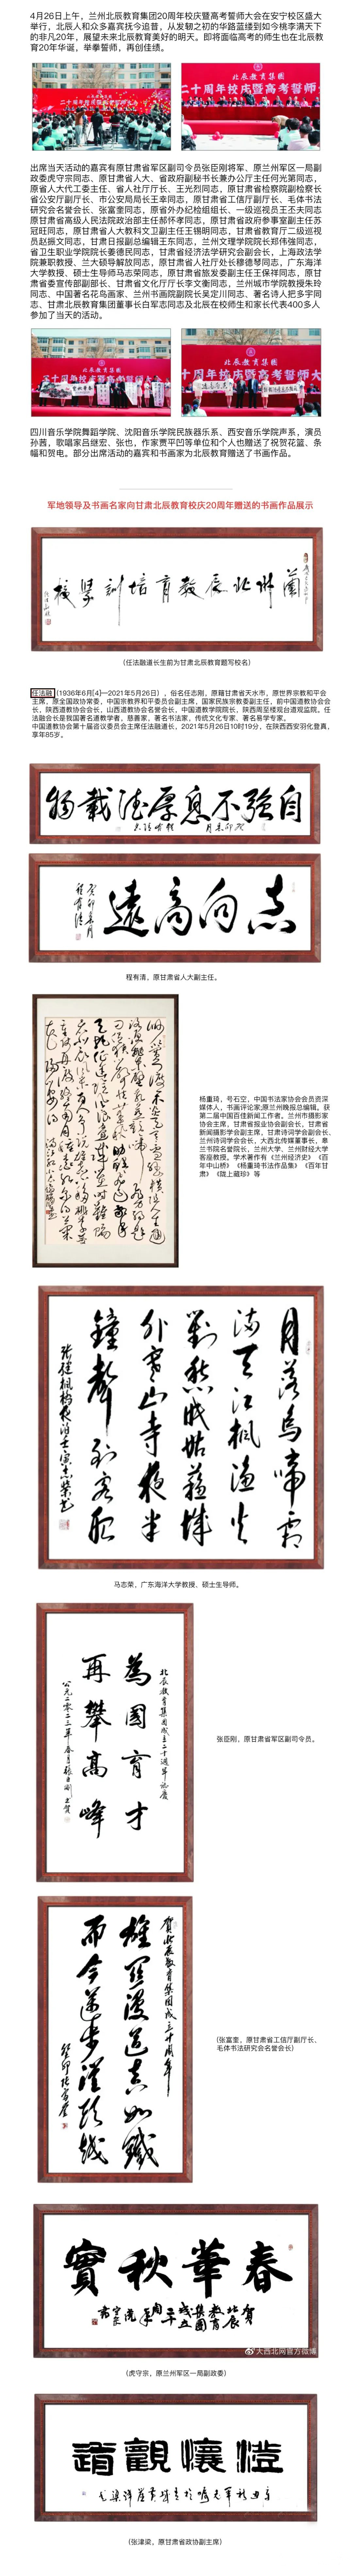 4月26日上午，兰州北辰教育集团20周年校庆暨高考誓师大会在安宁校区盛大
举行，北辰人和众多嘉宾抚今追昔，从发轫之初的筚路蓝缕到如今桃李满天下
的非凡20年，展望未来北辰教育美好的明天。即将面临高考的师生也在北辰教
育20年华诞，举拳誓师，再创佳绩。
北辰教育集团
二十周年校庆暨高考誓师大会
北辰教育集团
二十周年校庆暨高考誓师大
出席当天活动的嘉宾有原甘肃省军区副司令员张臣刚将军、原兰州军区一局副
政委虎守宗同志，原甘肃省人大、省政府副秘书长兼办公厅主任何光第同志，
原省人大代工委主任、省人社厅厅长、王光烈同志，原甘肃省检察院副检察长
省公安厅副厅长、市公安局局长王幸同志，原甘肃省工信厅副厅长、毛体书法
研究会名誉会长、张富奎同志，原省外办纪检组组长、一级巡视员王丕夫同志
原甘肃省高级人民法院政治部主任郝怀孝同志，原甘肃省政府参事室副主任苏
冠旺同志，原甘肃省人大教科文卫副主任王锡明同志，甘肃省教育厅二级巡视
员赵振文同志，甘肃日报副总编辑王东同志，兰州文理学院院长郑伟强同志，
省卫生职业学院院长姜德民同志，甘肃省经济法学研究会副会长，上海政法学
院兼职教授、兰大硕导解放同志，原甘肃省人社厅处长穆德琴同志，广东海洋
大学教授、硕士生导师马志荣同志，原甘肃省旅发委副主任王保祥同志，原甘
肃省委宣传部副部长、甘肃省文化厅厅长李文衡同志，兰州城市学院教授朱玲
同志、中国著名花鸟画家、兰州书画院副院长吴定川同志、著名诗人把多宇同
志、甘肃北辰教育集团董事长白军志同志及北辰在校师生和家长代表400多人
参加了当天的活动。
四川音乐学院舞蹈学院、沈阳音乐学院民族器乐系、西安音乐学院声系，演员
孙茜，歌唱家吕继宏、张也，作家贾平凹等单位和个人也赠送了祝贺花篮、条
幅和贺电。部分出席活动的嘉宾和书画家为北辰教育赠送了书画作品。
军地领导及书画名家向甘肃北辰教育校庆20周年赠送的书画作品展示
校学训培育教辰北州兰
（任法融道长生前为甘肃北辰教育题写校名）
任法融（1936年6月[4]—2021年5月26日），俗名任志刚，原籍甘肃省天水市，原世界宗教和平会
主席，原全国政协常委，中国宗教界和平委员会副主席，国家民族宗教委副主任，前中国道教协会会
长，陕西道教协会会长，山西道教协会名誉会长，中国道教学院院长，陕西周至楼观台道观监院。任
法融会长是我国著名道教学者，慈善家，著名书法家，传统文化专家、著名易学专家。
中国道教协会第十届咨议委员会主席任法融道长，2021年5月26日10时19分，在陕西西安羽化登真，
享年85岁。
物载德厚息不强自
遠高向志
程有清，原甘肃省人大副主任。
杨重琦，号石空，中国书法家协会会员资深
媒体人，书画评论家;原兰州晚报总编辑。获
第二届中国百佳新闻工作者。兰州市摄影家
协会主席，甘肃省报业协会副会长，甘肃省
新闻摄影学会副主席，甘肃诗词学会副会长，
兰州诗词学会会长，大西北传媒董事长，皋
兰书院名誉院长，兰州大学、兰州财经大学
客座教授。学术著作有《兰州经济史》《百
年中山桥》《杨重琦书法作品集》《百年甘
肃》《陇上藏珍》等
月落烏啼霜
满天江楓漁火
對愁眠姑蘇城
外寒山寺夜半
鐘聲到客船
张繼楓橋夜泊 士寅 志榮書
马志荣，广东海洋大学教授、硕士生导师。
北辰教育集团成立二十週年誌慶
為國育才
再攀高峰
公元二零二三年春月張臣刚書賀
张臣刚，原甘肃省军区副司令员。
賀北辰教育集团成立二十周年
雄关漫道真如鐵
而今邁步從頭越
癸卯 张富奎
（张富奎，原甘肃省工信厅副厅长，
毛体书法研究会名誉会长）
實秋華春
@大西北网官方微博
（虎守宗，原兰州军区一局副政委）
道觀懷澄
（张津梁，原甘肃省政协副主席）